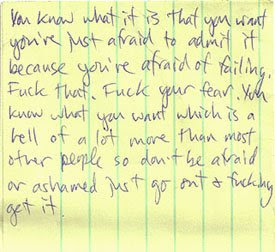 You know what it is that you want
you're just afraid to admit it
because you're afraid of failing.
Fuck that. Fuck your fear. You
know what you want which is a
hell of a lot more than most
other people so don't be afraid
or ashamed just go out & fucking
get it.